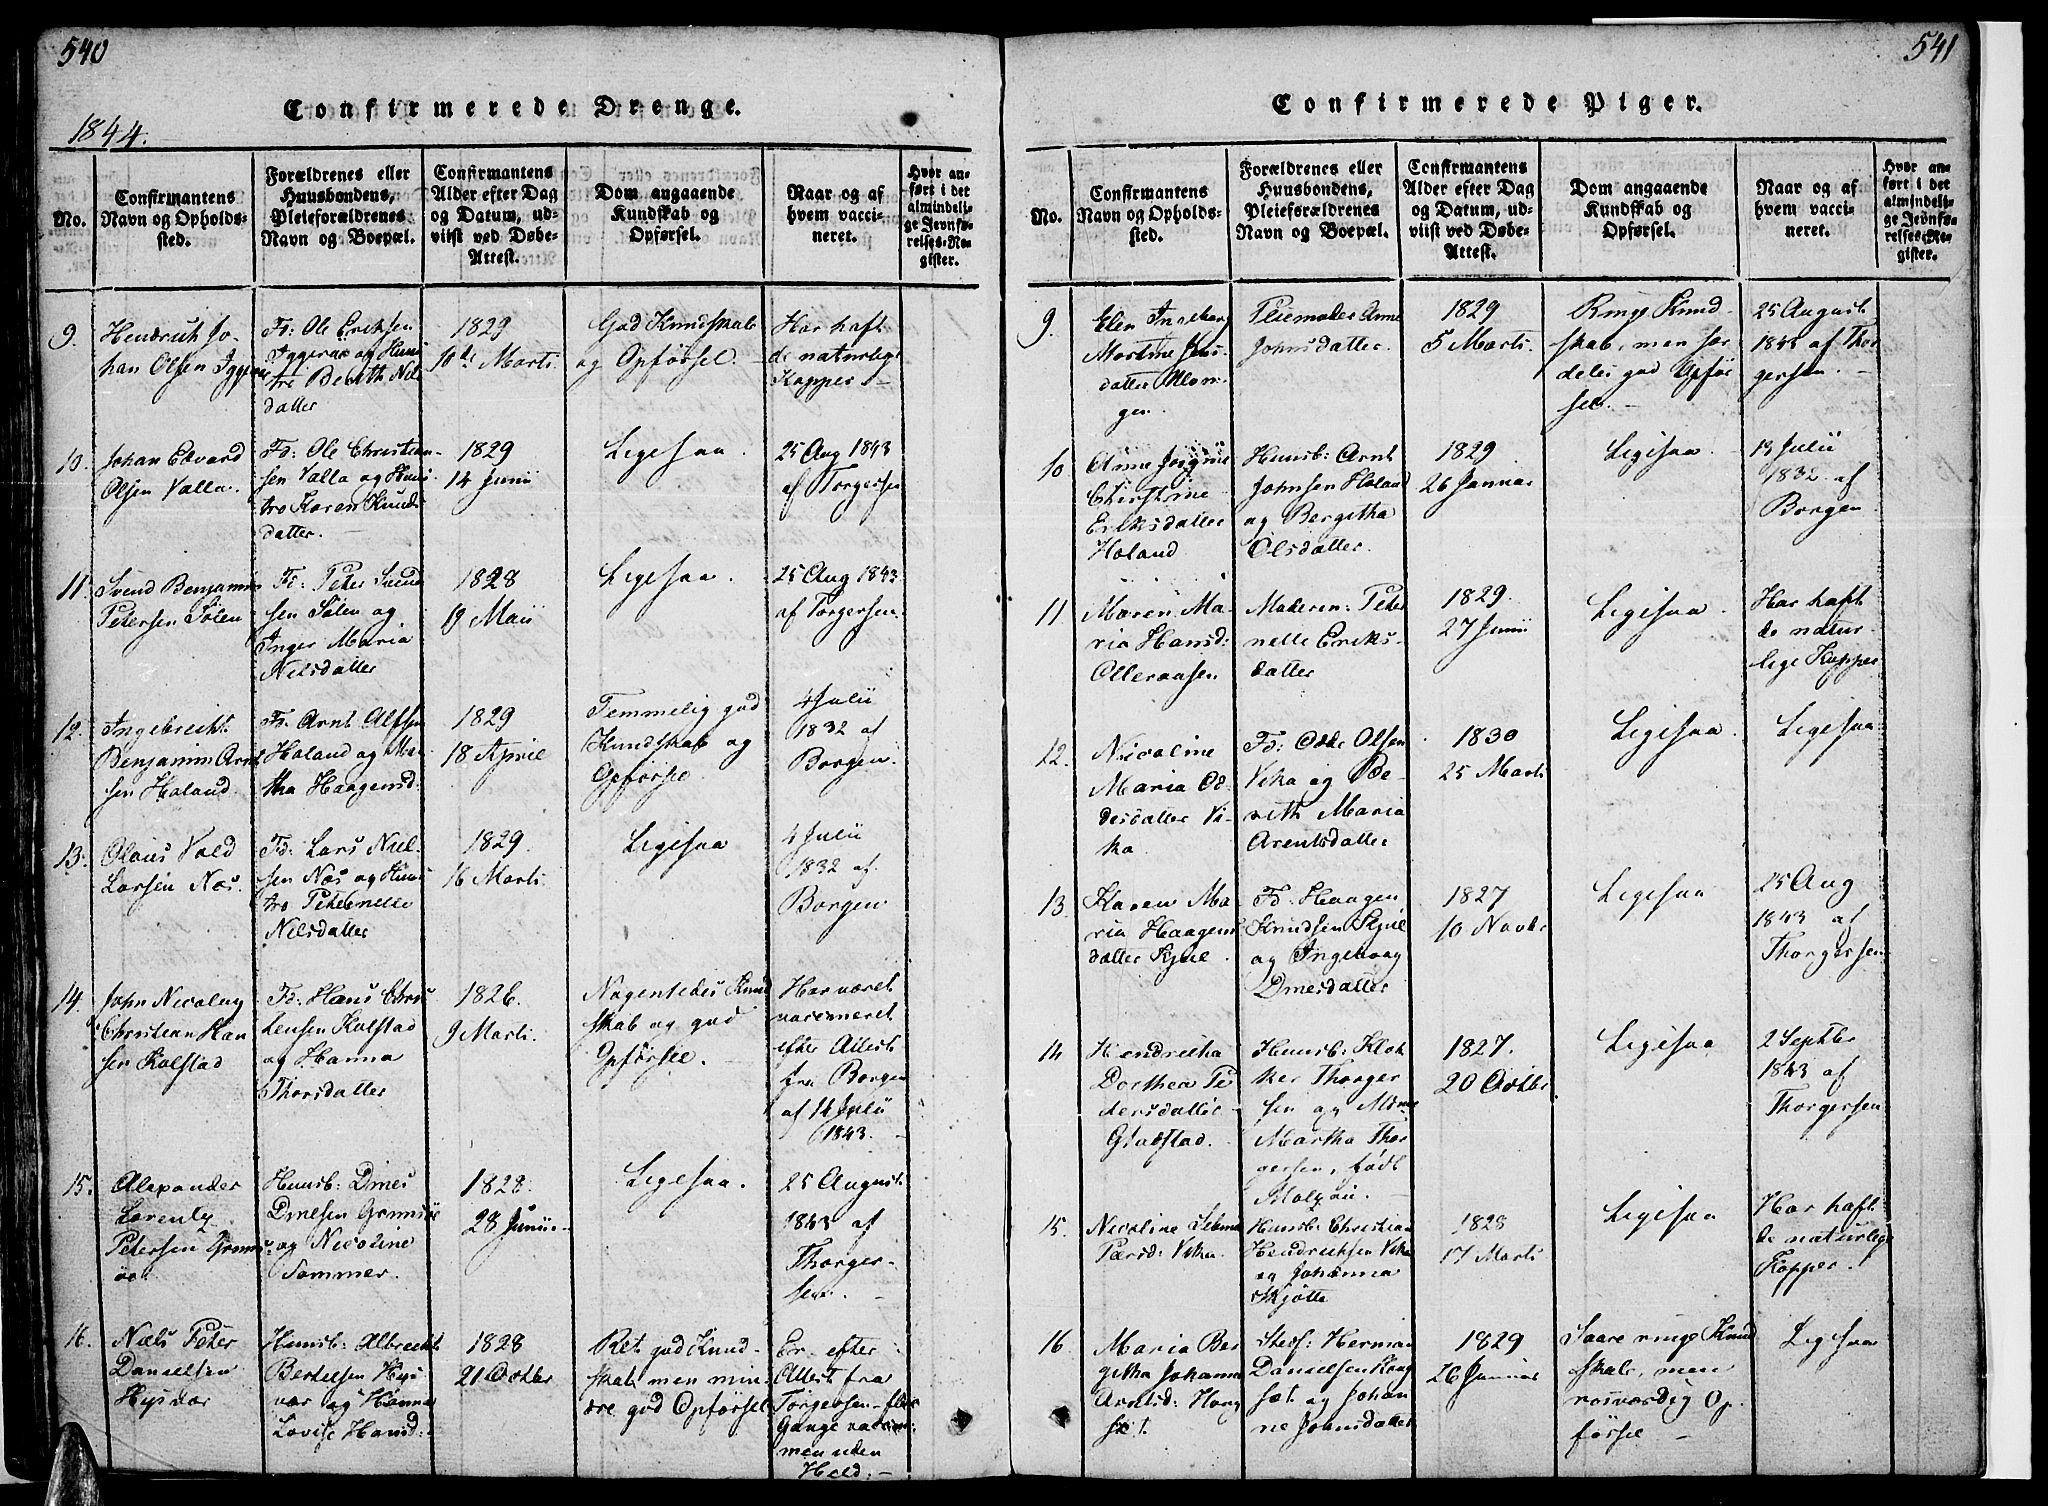 540
Confirmerede Drenge.
1844.
No.
Confirmantens
Navn og Opholds-
sted.
Forældrenes eller
Huusbondens,
Pleieforældrenes
Navn og Boepæl.
Confirmantens
Alder efter Dag
og Datum, ud-
viist ved Døbe-
Attest.
Dom angaaende
Kundskab og
Opførsel.
Naar og af
hvem vacci-
neret.
Hvor an-
ført i det
almindeli-
ge Jevnfø-
relses-Re-
gister.
9.
Hendrich Jo-
han Olsen
Fd: Ole Eriksen
og Hus
tro Berith Nils
datter
1829
10de Marti
God Kundskab
og Opførsel.
Har haft
de naturlige
Kopper
10.
Johan Edvard
Olsen Valla.
Fd: Ole Christian-
sen Valla og Huus-
tro Karen Knuds
datter.
1829
14 Junii
Ligesaa.
25 Aug 1843
af Torgersen
11.
Svend Benjamin
Petersen Sølen
Fd: Peter Svend
sen Sølen og
Inger Maria
Nilsdatter
1828
19 Maii
Ligesaa.
25 Aug 1843
af Torgersen.
12.
Ingebrecht
Benjamin Arnt
sen Holand.
Fd: Arnt Alfsen
Holand og Mar-
tha Haagensd:
1829
18 April
Temmelig god
Kundskab og
Opførsel.
4 Julii
1832 af
Borgen.
13.
Olaus Vold
Larsen Næs.
Fd: Lars Niel-
sen Næs og Huus
tro Petternelle
Nilsdatter
1829.
16 Marti.
Ligesaa
4 Julii
1832 af.
Borgen
14.
John Nicolay
Christian Han
sen Kalstad
Fd: Hans Chris
tensen Kalstad
og Hanna
Thorsdatter
1826.
9 Marti.
Nogenledes Kund
skab og god
Opførsel.
Har været
vaccineret
efter Attest
fra Borgen
af 14 Julii
1843.
15.
Alexander
Lorentz
Petersen
Huusb: Dines
og Nicoline
Sommer.
1828.
28 Junii
Ligesaa.
25 August.
1843 af
Thorger-
sen.
16.
Niels Peter
Danielsen
Hysvær
Huusb: Albrecht
Bertelsen Hys
vær og Hanna
Lovise Hansd:
1828
21 Octbr
Ret god Kund-
skab men min
dre god Opførsel
Er efter
Attest fra
Torgersen flere
Gange vaccine..
men uden
Held.
541
Confirmerede Piger.
No.
Confirmantens
Navn og Opholds-
sted.
Forældrenes eller
Huusbondens,
Pleieforældrenes
Navn og Boepæl.
Confirmantens
Alder efter Dag
og Datum, ud-
viist ved Døbe-
Attest.
Dom angaaende
Kundskab og
Opførsel.
Naar og af
hvem vacci-
neret.
Hvor an-
ført i det
almindeli-
ge Jevnfø-
relses-Re-
gister.
9.
Elen Ingeborg
Martine Jens
datter
Pleiemoder Anne
Johnsdatter.
1829
5 Marti.
Ringe Kund-
skab, men sær
deles god Opfør
sel.
25 August
1843 af Thor
gersen.
10
Anne
Christine
Eriksdatter
Holand
Huusb: Arnt
Johnsen Holand
og Bergitha
Olsdatter.
1829.
26 Januar
Ligesaa.
13 Julii
1832. af
Borgen
11
Maren Ma-
ria Hansd:
Olleraasen
Moderen: Peter
nelle Eriks-
datter
1829.
27 Junii
Ligesaa.
Har haft
de natur-
lige Kopper
12.
Nicoline
Maria Od-
desdatter Vi-
ka
Fd: Odde Olsen
Vika og Be-
rith Maria
Arentsdatter
1830
25 Marti
Ligesaa.
Ligesaa.
13.
Karen Ma-
ria Haagens
datter Kjul.
Fd. Haagen
Knudsen Kjul
og Ingeborg
Dinesdatter
1827
10 Novbr
Ligesaa
25 Aug
1843 af
Thorgersen
14
Hendricha
Dorthea Pe
dersdatter
Gladstad.
Huusb: Klok
ker Thorger
sen og
Martha Thor
gersen, født
1827.
20 Octbr
Ligesaa
2 Septbr
1843 af
Thorgersen
15.
Nicoline
Vika.
Huusb: Christian
Hendricksen Vika
og Johanna
Skjøtte
1828
17 Marti
Ligesaa
Har haft
de naturlige
Kopper.
16.
Maria Ber
githa Johanna
Arntsd: Houg
set.
Stedf: Herman
Danielsen Houg
set og Johan
ne Johnsdatter
1829
26 Januar
Saare ringe Kund
skab, men
rosværdig Op.
førsel
Ligesaa